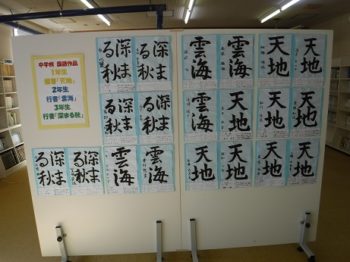 中学校 国語作品
1年生
楷書「天地」
2年生
行書「雲海」
3年生
行書「深まる秋」
深まる秋
深まる秋
雲海
雲海
天地
天地
深まる秋
深まる秋
天地
天地
天地
天地
深まる秋
深まる秋
雲海
雲海
天地
天地
天地